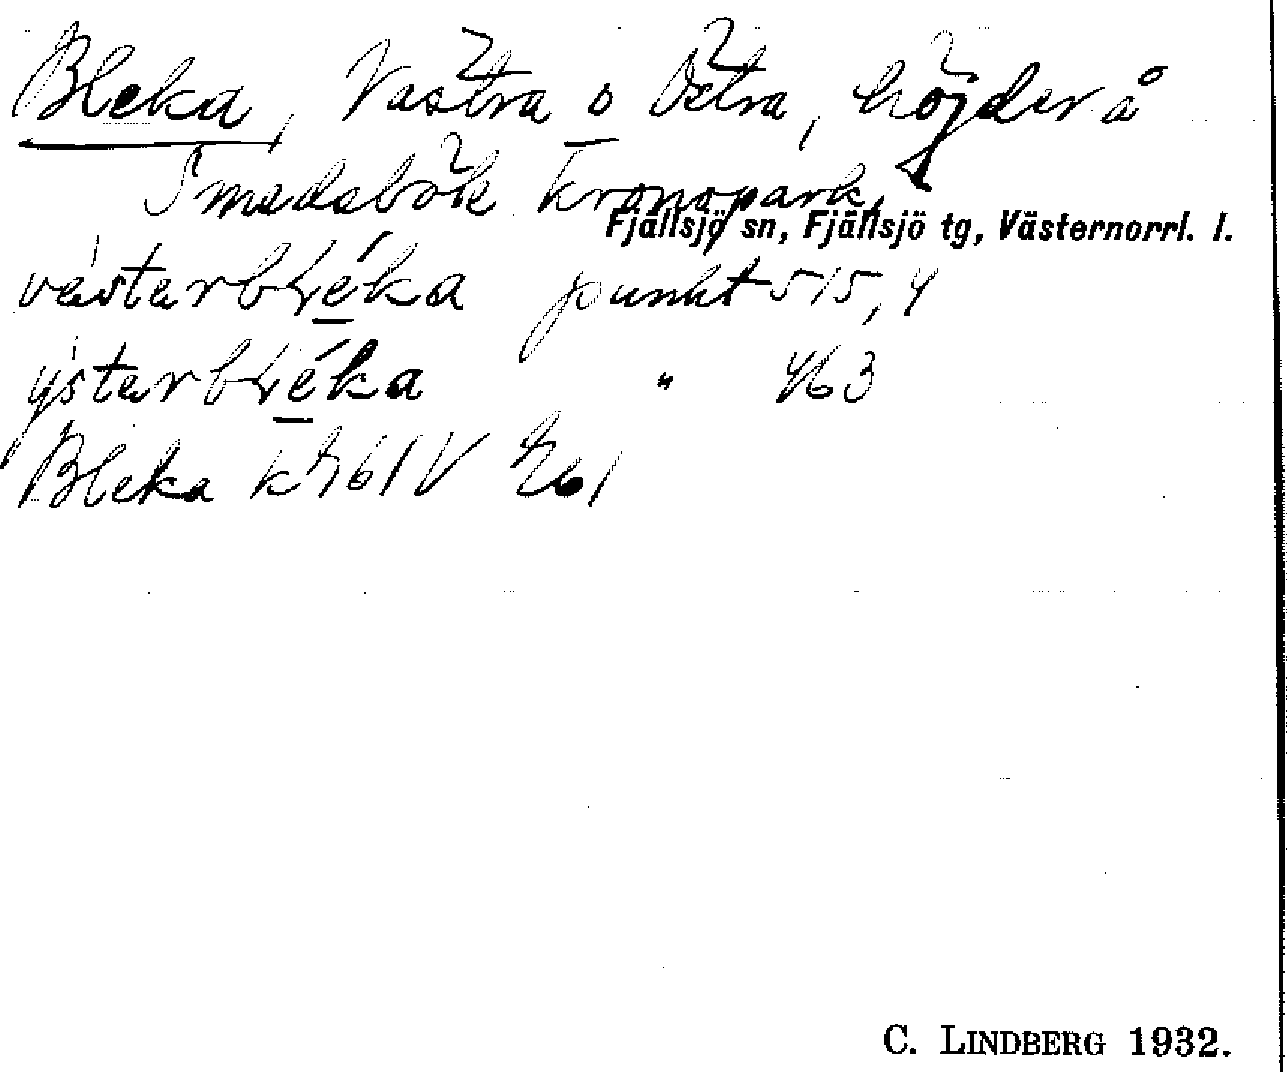 Bleka, Västra o Östra, höjder å
Smedsbök Kronopark,
Fjällsjö sn, Fjällsjö tg, Västernorrl. l.
västarbléka punkt 515,4
ýstarbléka " 463
Bleka k 61 V 61
C. LINDBERG 1932.